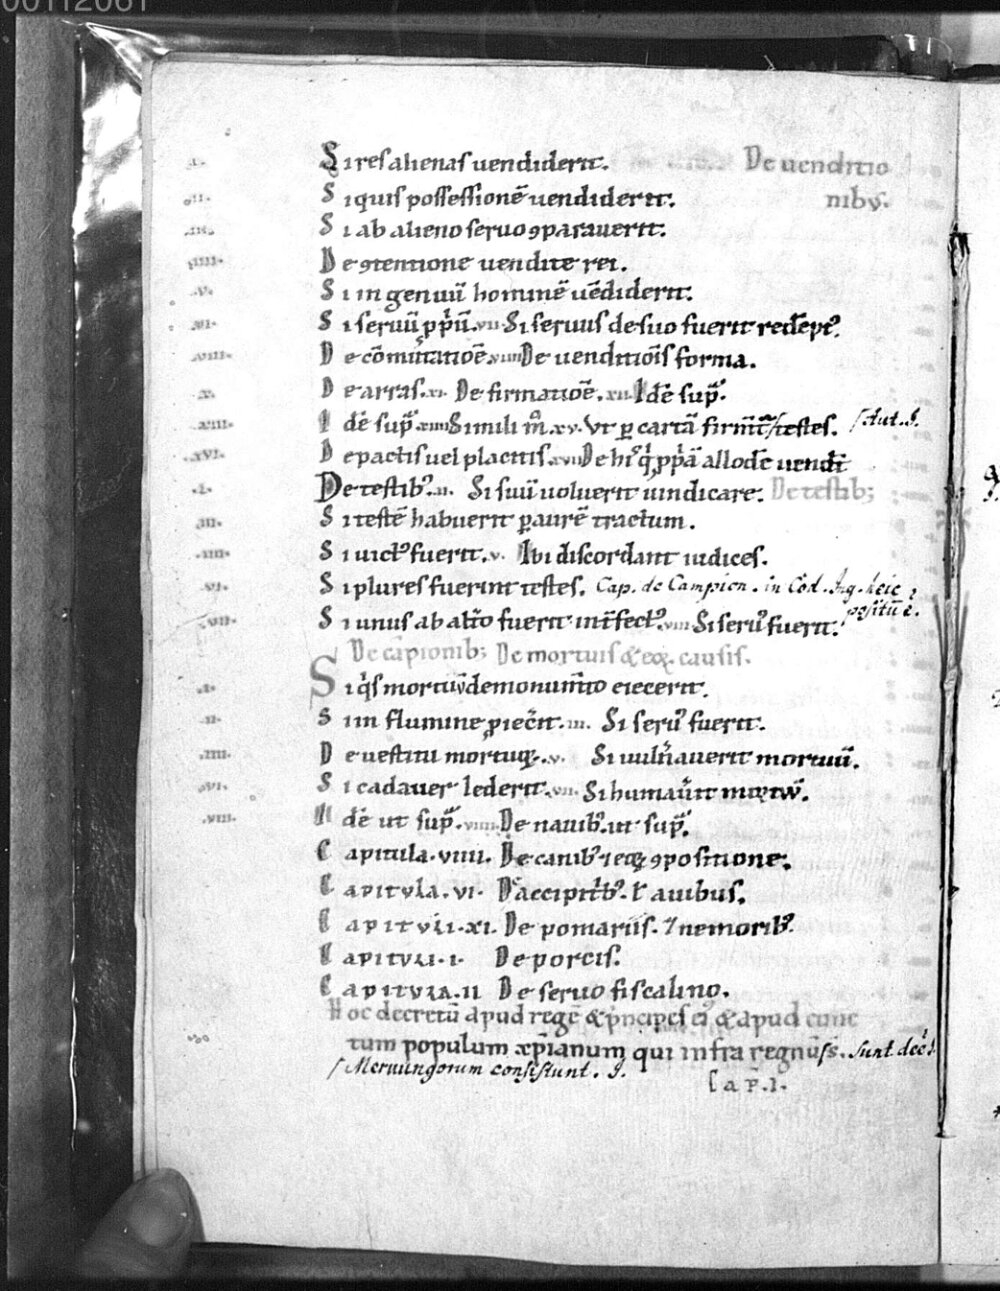 00112061
.i. Si res alienas uendiderit. De uenditio
.ii. Si quis possessionē uendiderit. nibꝰ.
.iii. Si ab alieno seruo ꝯparauerit.
.iiii. De ꝯtentione uendite rei.
.v. Si ingenuū hominē uēdiderit.
.vi. Si seruū ꝓpriū. vii. Si seruus de suo fuerit redēptꝰ.
.viii. De cōmutatiōe. viiii. De uenditiōis forma.
.x. De arras. xi. De firmatiōe. xii. Idē supͣ.
.xiii. Idē supͣ. xiiii. Simili m̊. xv. Ut ꝑ cartā firm̄t testes. ſ Aut. I.
.xvi. De pactis uel placitis. xvii. De hiꝰ qͥ ꝓpͥā allodē uendit
.i. De testibꝰ. ii. Si suū uoluerit uindicare. De testib;
.iii. Si testē habuerit ꝑ aurē tractum.
.iiii. Si uictꝰ fuerit. v. Ibi discordant iudices.
.vi. Si plures fuerint testes. Cap. de Campion. in Cod. Ing. heic
positū ē.
.vii. Si unus ab altō fuerit int̄fectꝰ. viii. Si seruꝰ fuerit.
De capionib; De mortuis & eoꝝ causis.
.i. Si qͥs mortuū de monumto eiecerit.
.ii. Si in flumine ꝓiec̄it. iii. Si seruꝰ fuerit.
.iiii. De uestitu mortuoꝝ. v. Si uuln̄auerit mortuū.
.vi. Si cadauer lederit. vii. Si humaūit mortuū.
.viii. Idē ut supͣ. viiii. De nauibꝰ. ut supͣ.
Capitula. viiii. De canibꝰ ⁊ eoꝝ ꝯpositione.
Capitula. vi. De accipitͥbꝰ. ł auibus.
Capituli. xi. De pomariis. ⁊ nemoribꝰ.
Capituli. i. De porcis.
Capitula. ii De seruo fiscalino.
Hoc decretū apud regē & pͥncipes eiꝰ & apud cunc
tum populum xp̄ianum qui infra regnū ſ. sunt decͥ.
ſ Meruungorum consistunt. I.
Cap̄. I.